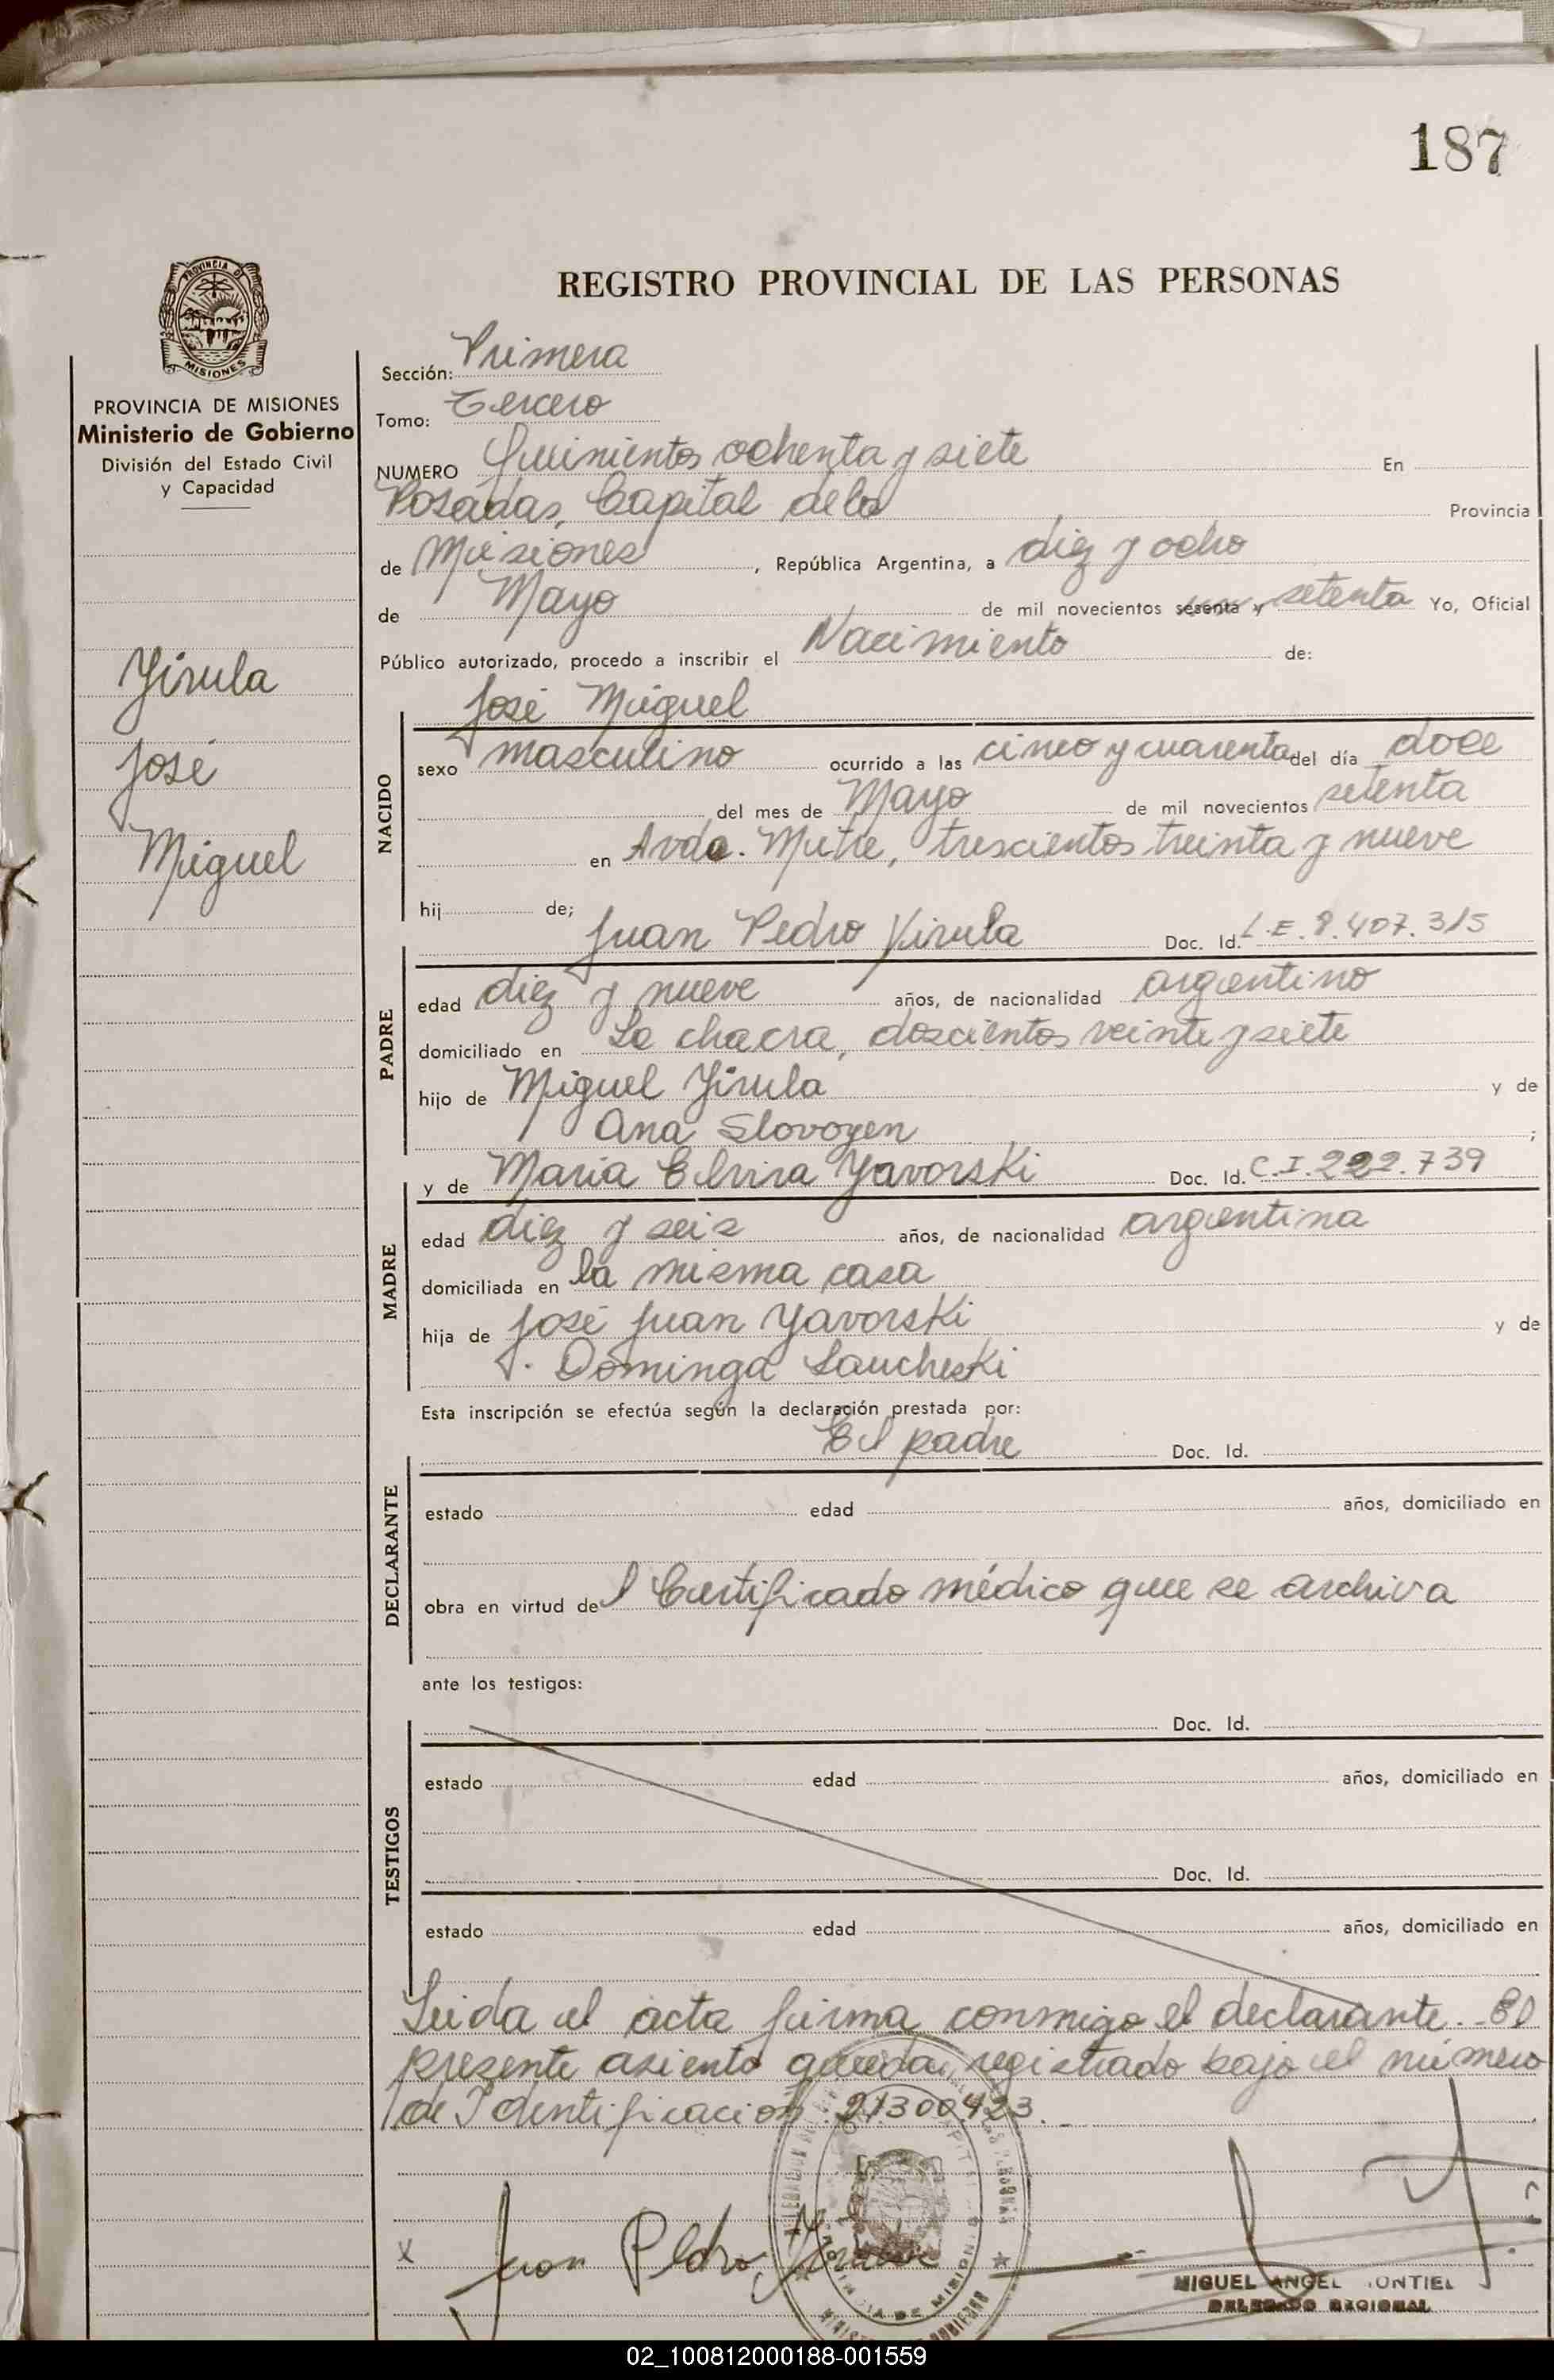 187
REGISTRO PROVINCIAL DE LAS PERSONAS
PROVINCIA DE
MISIONES
PROVINCIA DE MISIONES
Ministerio de Gobierno
División del Estado Civil
y Capacidad
Yirula
José
Miguel
Sección: Primera
Tomo: Tercero
NUMERO Quinientos ochenta y siete En
Posadas, Capital de la Provincia
de Misiones, República Argentina, a diez y ocho
de Mayo de mil novecientos sesenta y setenta Yo, Oficial
Público autorizado, procedo a inscribir el Nacimiento de:
José Miguel
NACIDO
sexo masculino ocurrido a las cinco y cuarenta del día doce
del mes de Mayo de mil novecientos setenta
en Avda. Mitre, trescientos treinta y nueve
hij de;
Juan Pedro Yirula Doc. Id. L.E. 8.407.315
PADRE
edad diez y nueve años, de nacionalidad argentino
domiciliado en La chacra, doscientos veinte y siete
hijo de Miguel Yirula y de
Ana Slovoyen ;
y de María Elvira Yavorski Doc. Id. C.I. 222.739
MADRE
edad diez y seis años, de nacionalidad argentina
domiciliada en la misma casa
hija de José Juan Yavorski y de
Dominga Saucheski
Esta inscripción se efectúa según la declaración prestada por:
El padre Doc. Id.
DECLARANTE
estado edad años, domiciliado en
obra en virtud del Certificado médico que se archiva
ante los testigos:
Doc. Id.
TESTIGOS
estado edad años, domiciliado en
Doc. Id.
estado edad años, domiciliado en
Leida el acta firma conmigo el declarante. El
presente asiento queda registrado bajo el número
de Identificación 21300423.
x Juan Pedro Yirula
MIGUEL ANGEL MONTIEL
DELEGADO REGIONAL
02_100812000188-001559